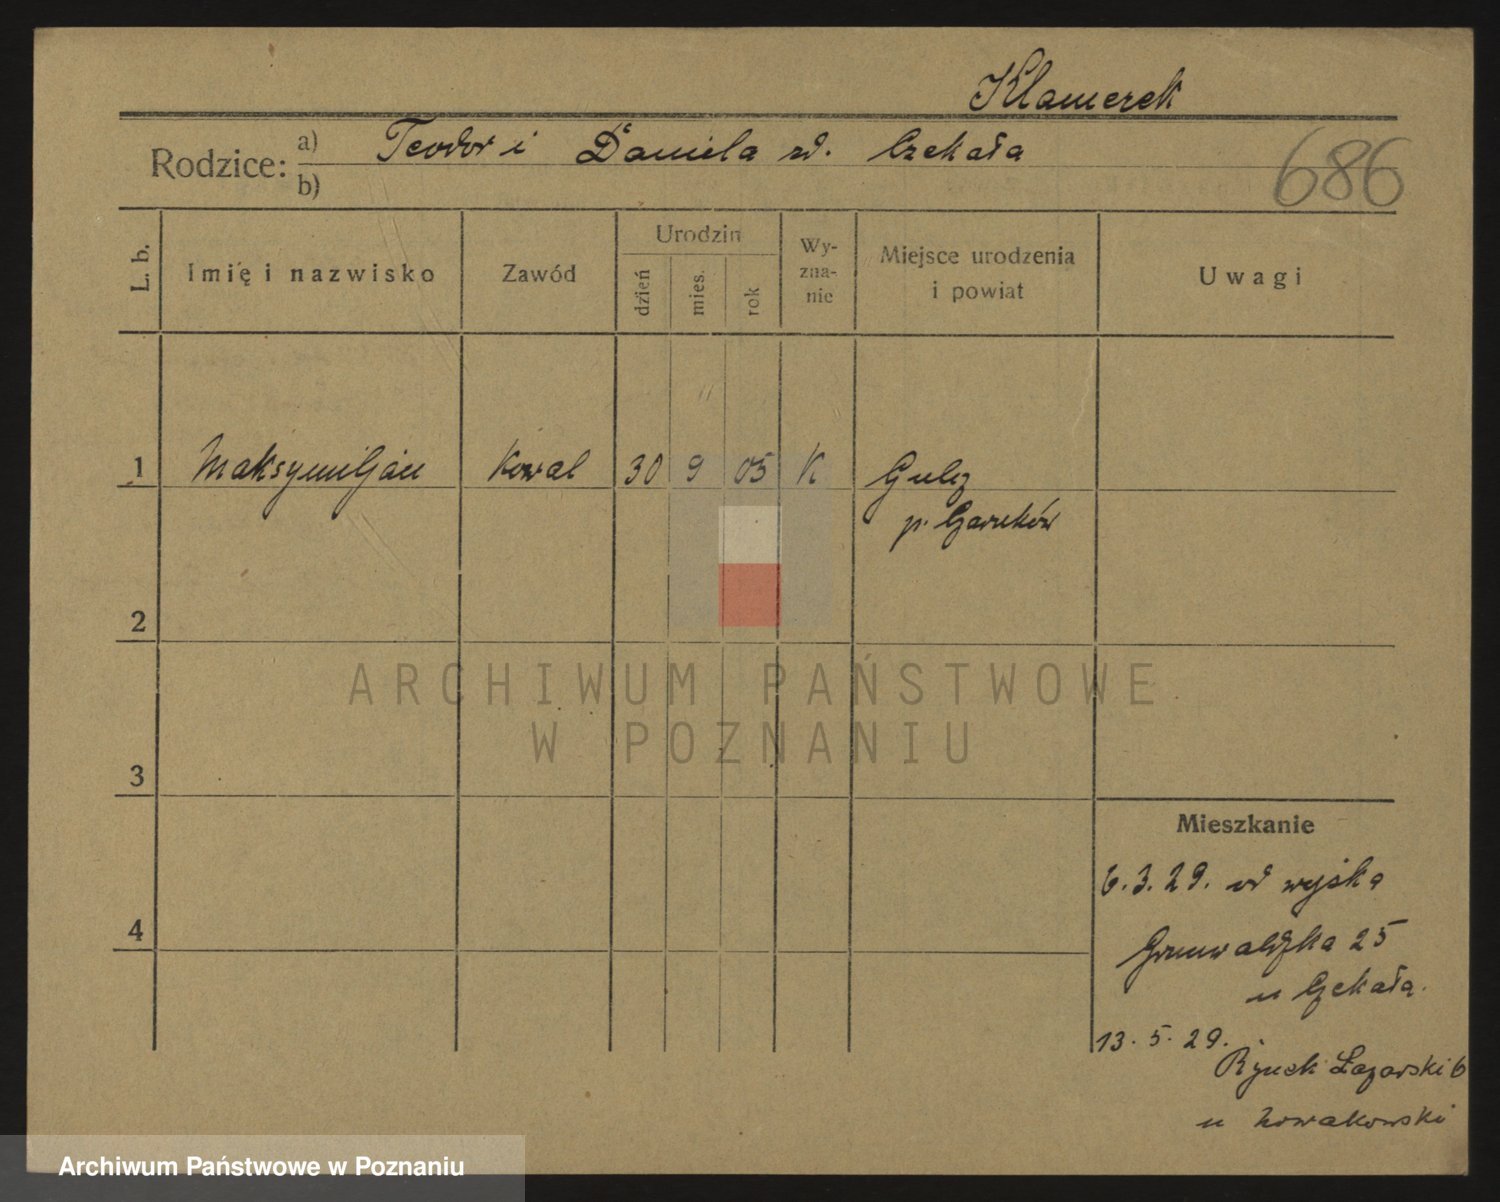 Klamerek
Rodzice: a) Teodor i Daniela zd. Czekała
b)
686
L. b.
Imię i nazwisko
Zawód
Urodzin
dzień
mies.
rok
Wy-
zna-
nie
Miejsce urodzenia
i powiat
Uwagi
1 Maksymiljan Kowal 30 9 05 K Gulcz
p. Czarnków
2
3
4
Mieszkanie
6.3.29. od wojska
Grunwaldzka 25
u Czekała.
13.5.29.
Rynek Łazarski 6
u Nowakowski
ARCHIWUM PAŃSTWOWE
W POZNANIU
Archiwum Państwowe w Poznaniu